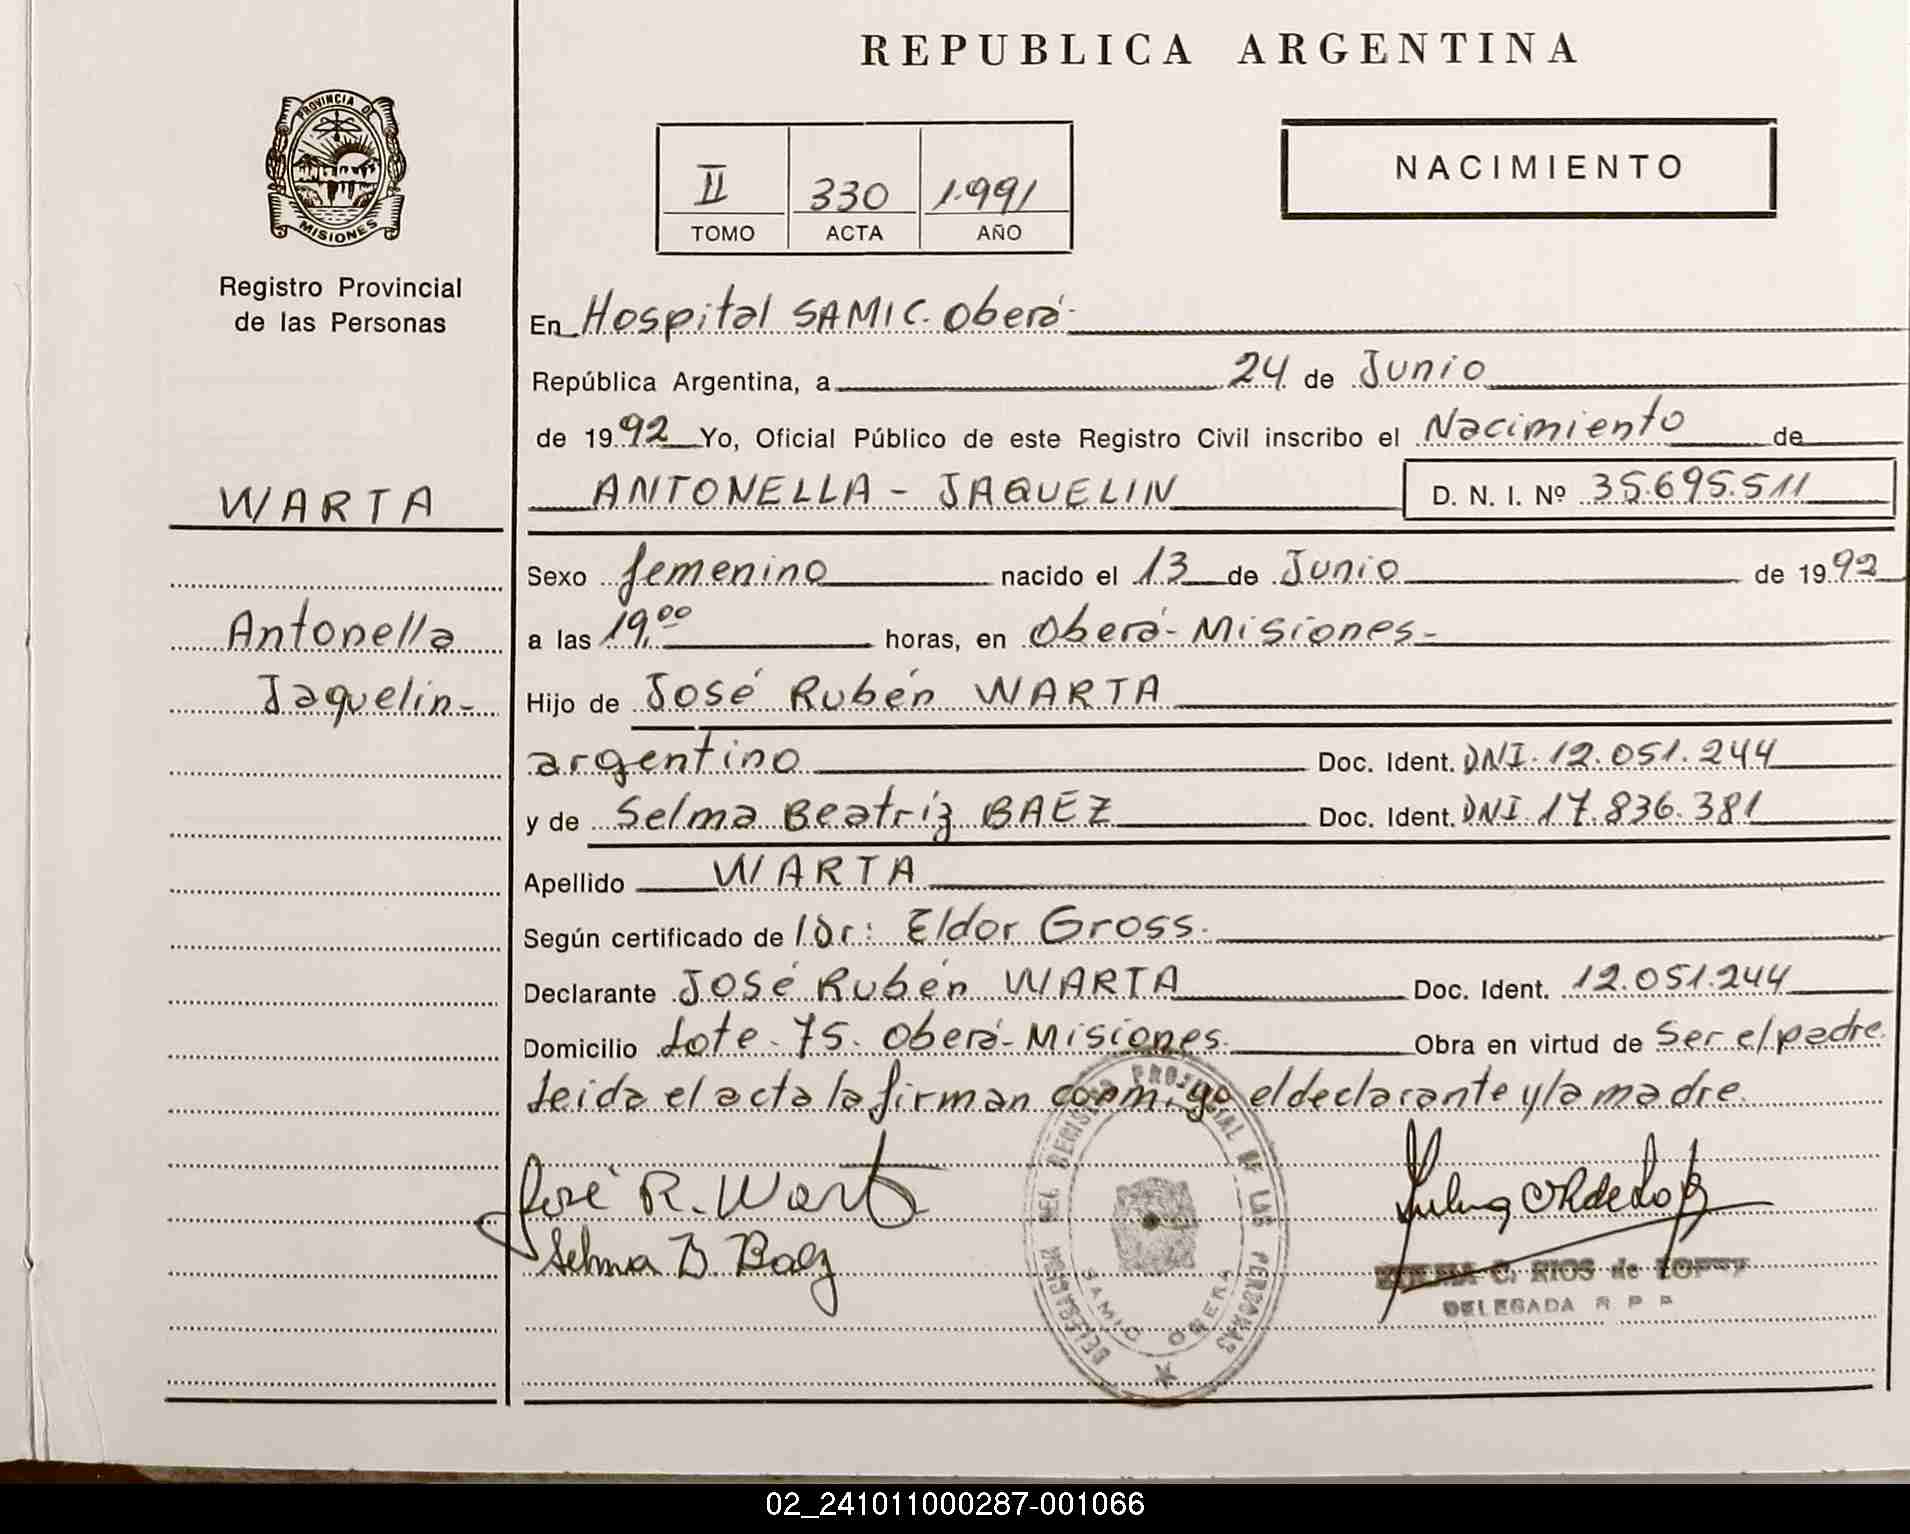 REPUBLICA ARGENTINA
PROVINCIA DE
MISIONES
Registro Provincial
de las Personas
II 330 1.991
TOMO ACTA AÑO
NACIMIENTO
En Hospital SAMIC. Oberá-
República Argentina, a 24 de Junio
de 1992 Yo, Oficial Público de este Registro Civil inscribo el Nacimiento de
WARTA
ANTONELLA - JAQUELIN D. N. I. Nº 35.695.511
Sexo femenino nacido el 13 de Junio de 1992
Antonella
a las 19,00 horas, en Oberá-Misiones-
Jaquelin-
Hijo de José Rubén WARTA
argentino Doc. Ident. DNI. 12.051.244
y de Selma Beatriz BAEZ Doc. Ident. DNI 17.836.381
Apellido WARTA
Según certificado de Dr: Eldor Gross.
Declarante José Rubén WARTA Doc. Ident. 12.051.244
Domicilio Lote. 75. Oberá-Misiones. Obra en virtud de Ser el padre.
Leida el acta la firman conmigo el declarante y la madre.
José R. Warta
Selma B. Baez
DEL REGISTRO PROVINCIAL DE LAS PERSONAS
SAMIC OBERA
C. RIOS de LOPEZ
DELEGADA R P P
02_241011000287-001066